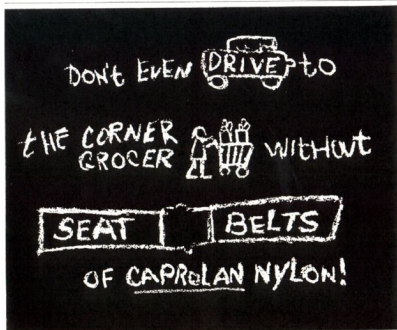 DON't EVEN DRIVE to
tHE CORNER
GROCER WItHOUt
SEAT BELTS
OF CAPROLAN NYLON!